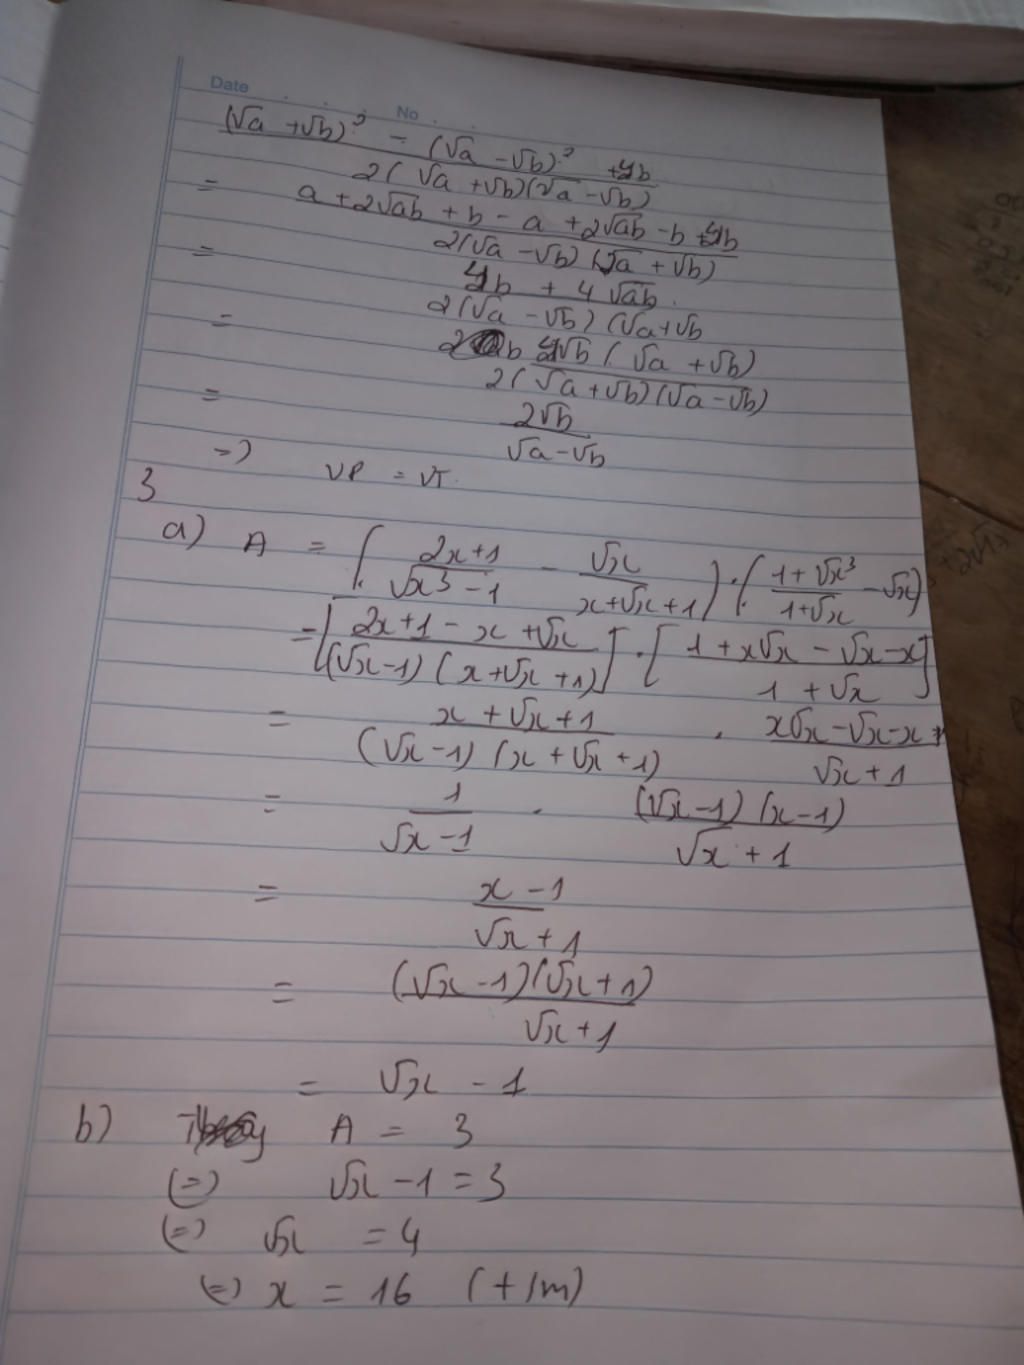 Date No
(√a + √b)² - (√a - √b)² + 4b / 2(√a + √b)(√a - √b)
= a + 2√ab + b - a + 2√ab - b + 4b / 2(√a - √b)(√a + √b)
= 4b + 4√ab / 2(√a - √b)(√a + √b
= 4√b(√a + √b) / 2(√a + √b)(√a - √b)
= 2√b / √a - √b
=> VP = VT.
3
a) A = (2x+1 / √x³ - 1 - √x / x+√x+1) . (1+√x³ / 1+√x - √x)
= [2x+1 - x + √x / (√x-1)(x+√x+1)] . [1 + x√x - √x - x / 1 + √x]
= x + √x + 1 / (√x - 1)(x + √x + 1) . x√x - √x - x + / √x + 1
= 1 / √x - 1 . (√x - 1)(x - 1) / √x + 1
= x - 1 / √x + 1
= (√x - 1)(√x + 1) / √x + 1
= √x - 1
b) A = 3
(=) √x - 1 = 3
(=) √x = 4
(=) x = 16 (+/m)